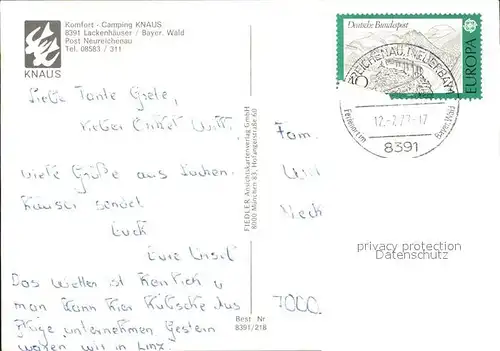 Komfort - Camping KNAUS
8391 Lackenhäuser / Bayer. Wald
Post Neureichenau
Tel. 08583 / 311
KNAUS
Liebe Tante Grete,
lieber Onkel Willi,
viele Grüße aus Lacken-
häuser sendet
Euch
Eure
Das Wetter ist herrlich u
man kann hier hübsche Aus
flüge unternehmen Gestern
waren wir in Linz.
FIEDLER Ansichtskartenverlag GmbH
8000 München 83, Hofangerstraße 60
Bestell Nr
8391/218
Deutsche Bundespost
EUROPA
REICHENAU, NIEDERBAY
12.-7.77-17
Ferienort im
Bayer. Wald
8391
Fam.
Will
Neck
7000
privacy protection
Datenschutz